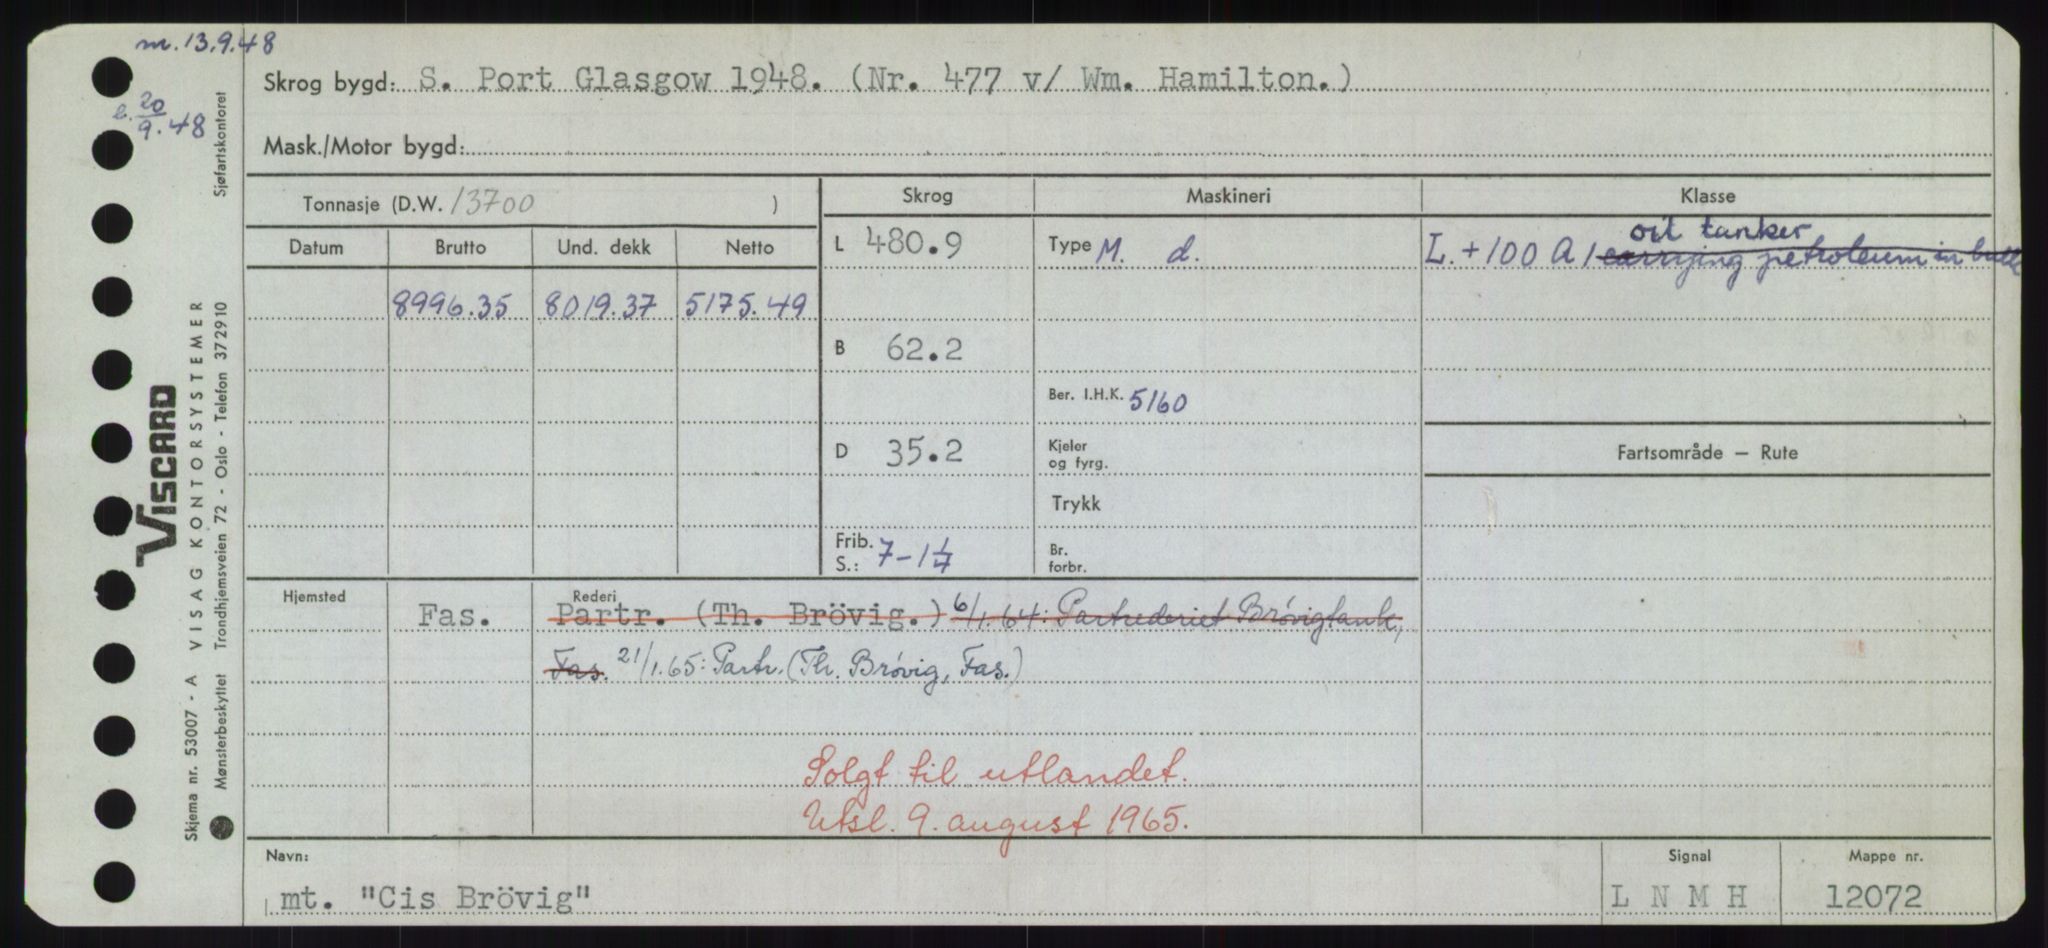 m. 13.9.48
b. 20/9.48
Skrog bygd: S. Port Glasgow 1948. (Nr. 477 v/ Wm. Hamilton.)
Mask./Motor bygd:
Tonnasje (D.W. 13700 )
Skrog
Maskineri
Klasse
Datum Brutto Und. dekk Netto
8996.35 8019.37 5175.49
L 480.9
B 62.2
D 35.2
Frib. S.: 7-1 1/4
Type M. d.
Ber. I.H.K. 5160
Kjeler
og fyrg.
Trykk
Br.
forbr.
oil tanker
L. + 100 A 1 carrying petroleum in bulk
Fartsområde — Rute
Hjemsted
Rederi
Fas. Partr. (Th. Brövig.) 6/1.64: Partrederiet Brøvigtank,
Fas. 21/1.65: Partr. (Th. Brøvig, Fas.)
Solgt til utlandet.
Utsl. 9. august 1965.
Navn:
mt. "Cis Brövig"
Signal
L N M H
Mappe nr.
12072
VISCARD
VISAG KONTORSYSTEMER
Skjema nr. 53007 - A
Mønsterbeskyttet Trondhjemsveien 72 - Oslo - Telefon 372910
Sjøfartskontoret